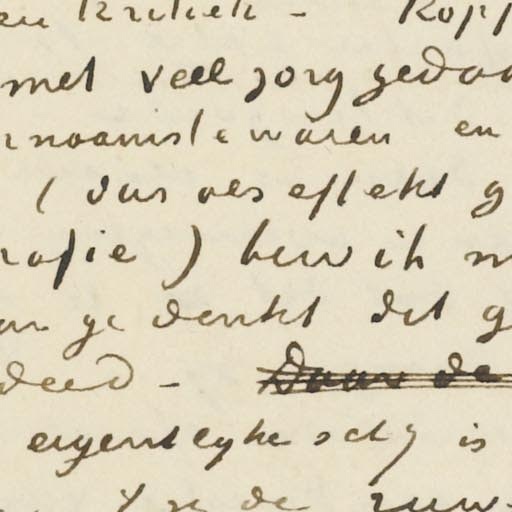 en kritiek - Kopp
met veel zorg gedaa
rnaamste waren en
( dus als effekt g
rafie ) ben ik m
an ge denkt dat g
deed - Daar de
eigentlyke is
de ruw